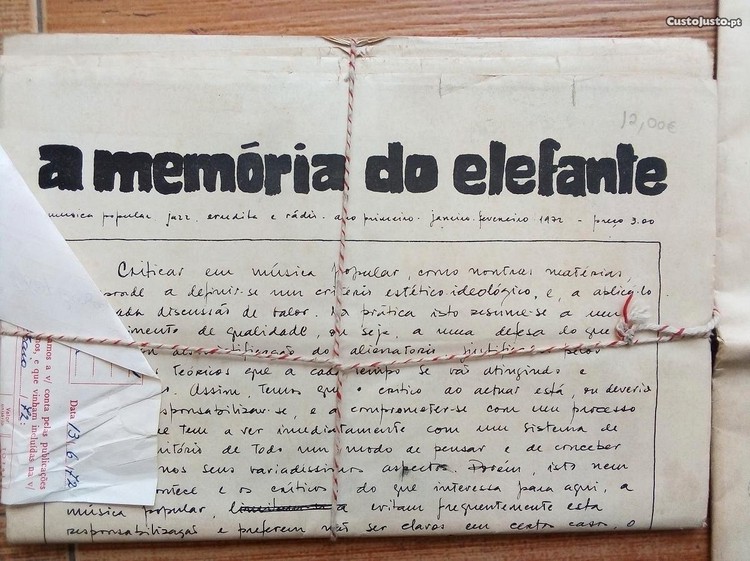 CustoJusto.pt
12,00€
a memória do elefante
musica popular. jazz. erudita e rádio. ano primeiro. janeiro-fevereiro 1972 - preço 3.00
Criticar em música popular, como noutras matérias,
a definir-se um critério estético-ideológico, e, a aplicá-lo
cada discussão de valor. Na prática isto resume-se a um
imento de qualidade, ou seja, a uma defesa do que
alienatório,
teóricos que a cada tempo se vão atingindo e
os. Assim, temos que o crítico ao actuar está, ou deveria
responsabilizar-se, e a comprometer-se com um processo
e tem a ver imediatamente com um sistema de
nitório de todo um modo de pensar e de conceber
nos seus variadíssimos aspectos. Porém, isto nem
ontece e os críticos do que interessa para aqui, a
música popular, evitam frequentemente esta
responsabilização e preferem não ser claros em certos casos, o
amos a v/ conta pelas publicações
nos, e que vinham incluídas na v/
maio / 72:
Data 13/6/72
Valor